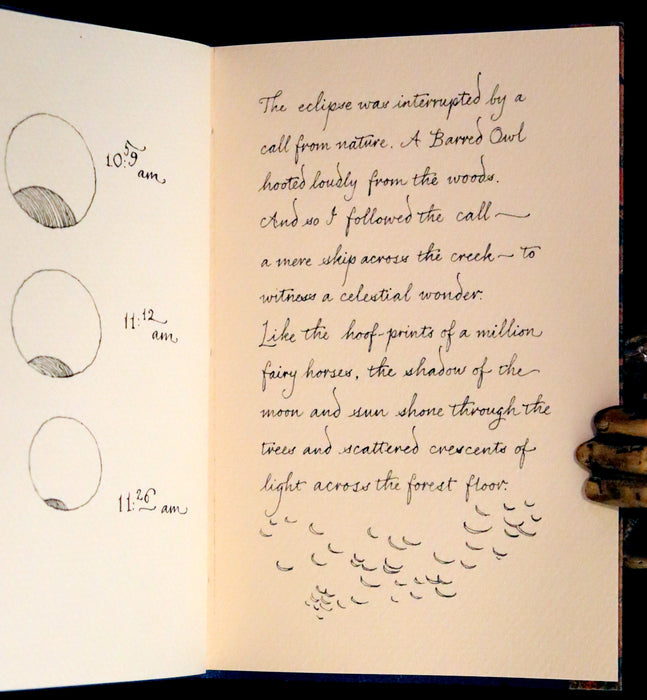 10:59
am
11:12
am
11:26 am
The eclipse was interrupted by a
call from nature. A Barred Owl
hooted loudly from the woods.
And so I followed the call —
a mere skip across the creek — to
witness a celestial wonder.
Like the hoof-prints of a million
fairy horses, the shadow of the
moon and sun shone through the
trees and scattered crescents of
light across the forest floor.